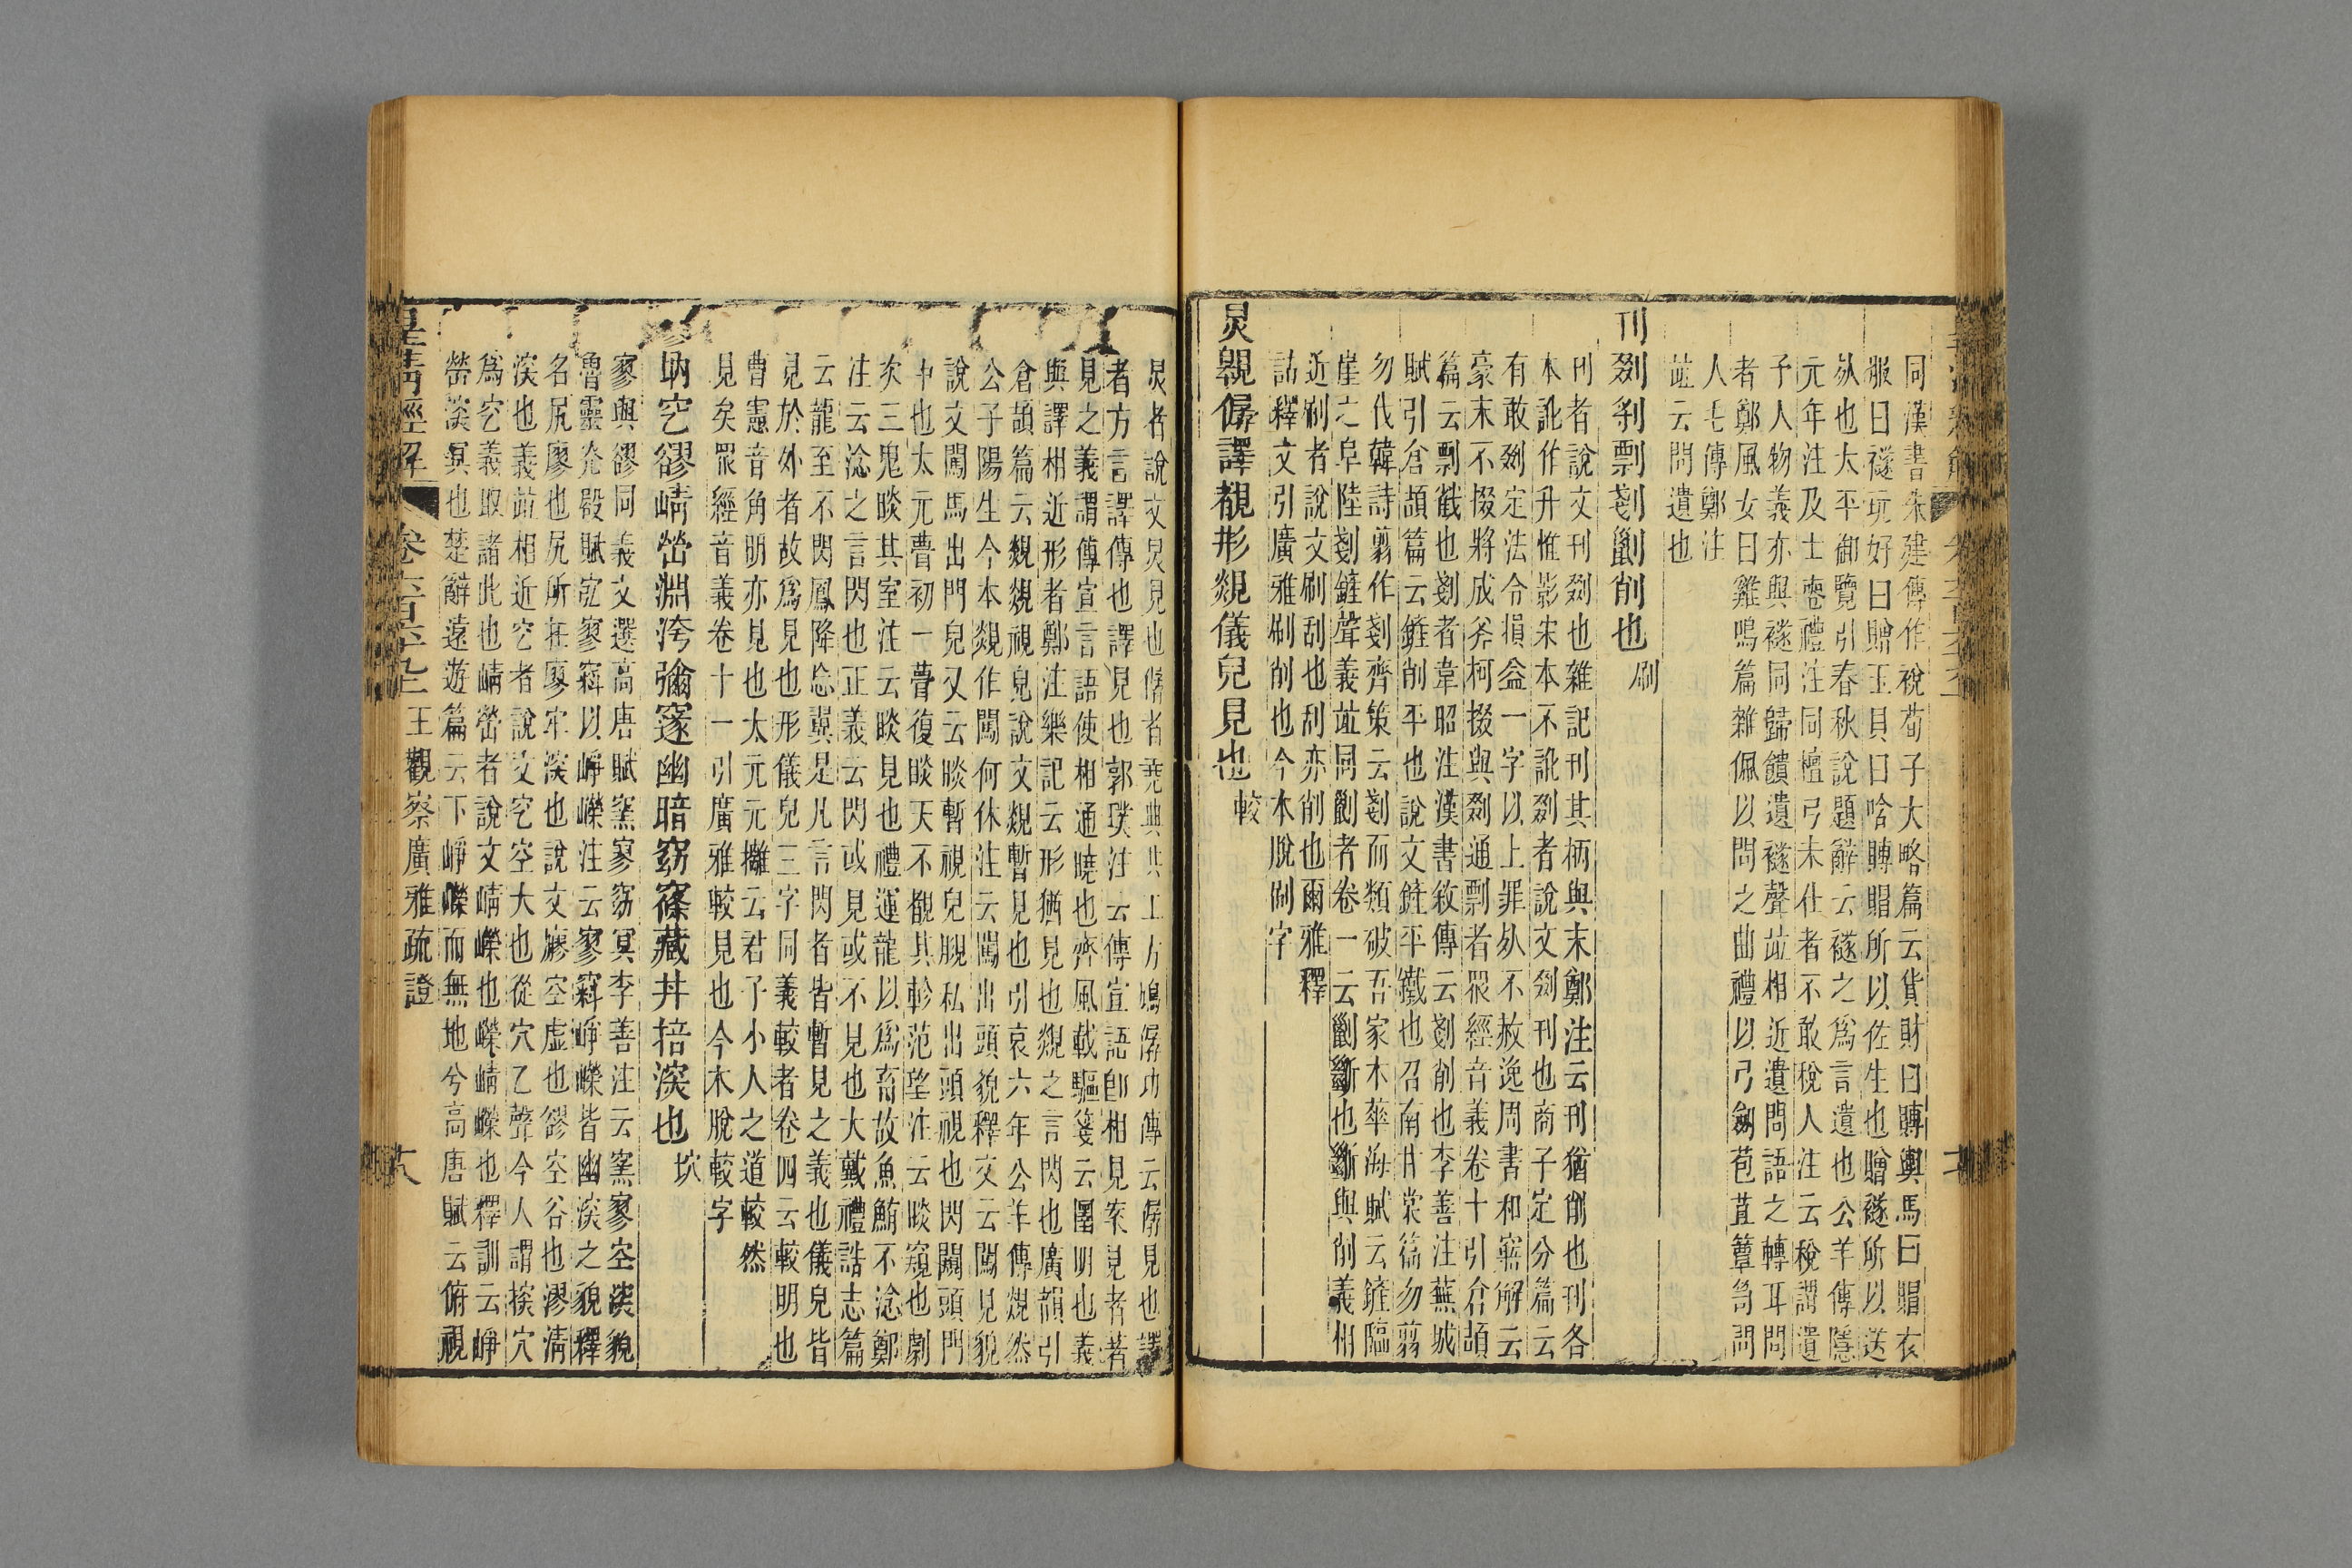 同漢書朱建傳作稅荀子大略篇云貨財曰賻輿馬曰賵衣
服曰襚玩好曰贈玉貝曰唅賻賵所以佐生也贈襚所以送
死也太平御覽引春秋說題辭云襚之爲言遺也公羊傳隱
元年注及士喪禮注同檀弓未仕者不敢稅人注云稅謂遺
予人物義亦與襚同歸饋遺襚聲竝相近遺問語之轉耳問
者鄭風女曰雞鳴篇雜佩以問之曲禮以弓劒苞苴簞笥問
人毛傳鄭注
竝云問遺也
刊剟刳剽剗劉削也刷
刊者說文刊剟也雜記刊其柄與末鄭注云刊猶削也刊各
本訛作升惟影宋本不訛剟者說文剟刊也商子定分篇云
有敢剟定法令損益一字以上罪死不赦逸周書和寤解云
豪末不掇將成斧柯掇與剟通剽者眾經音義卷十引倉頡
篇云剽截也剗者韋昭注漢書敘傳云剗削也李善注蕪城
賦引倉頡篇云鏟削平也說文鏟平鐵也召南甘棠篇勿翦
勿伐韓詩翦作剗齊策云剗而類破吾家木華海賦云鏟臨
崖之阜陸剗鏟聲義竝同劉者卷一云劉斷也斷與削義相
近刷者說文刷刮也刮亦削也爾雅釋
詁釋文引廣雅刷削也今本脫刷字
炅䚀僝譯覩形覢儀皃見也較
炅者說文炅見也僝者堯典共工方鳩僝功傳云僝見也譯
者方言譯傳也譯見也郭璞注云傳宣語卽相見案見者著
見之義謂傳宣言語使相通曉也齊風載驅箋云圛明也義
與譯相近形者鄭注樂記云形猶見也覢之言閃也廣韻引
倉頡篇云覢覢視皃說文覢暫見也引哀六年公羊傳覢然
公子陽生今本覢作闖何休注云闖出頭貌釋文云闖見貌
說文闖馬出門皃又云睒暫視皃覘私出頭視也閃闚頭門
中也太元瞢初一瞢復睒天不覩其軫范望注云睒窺也劇
次三鬼睒其室注云睒見也禮運龍以爲畜故魚鮪不淰鄭
注云淰之言閃也正義云閃或見或不見也大戴禮誥志篇
云龍至不閃鳳降忘翼是凡言閃者皆暫見之義也儀皃皆
見於外者故爲見也形儀皃三字同義較者卷四云較明也
曹憲音角明亦見也太元元攡云君子小人之道較然
見矣眾經音義卷十一引廣雅較見也今本脫較字
窌空豂崝嵤淵洿彌䆳幽暗窈窱藏丼掊深也坎
寥與豂同義文選高唐賦窐寥窈冥李善注云窐寥空深貌
魯靈光殿賦宏寥窲以崢嶸注云寥窲崢嶸皆幽深之貌釋
名尻廖也尻所在廖牢深也說文㝩空虛也豂空谷也漻淸
深也義竝相近空者說文空空大也從穴乙聲今人謂挨穴
爲空義取諸此也崝嵤者說文崝嶸也嶸崝嶸也釋訓云崢
嵤深冥也楚辭遠遊篇云下崢嶸而無地兮高唐賦云俯視
皇淸經解
卷六百六十九
王觀察廣雅疏證
大